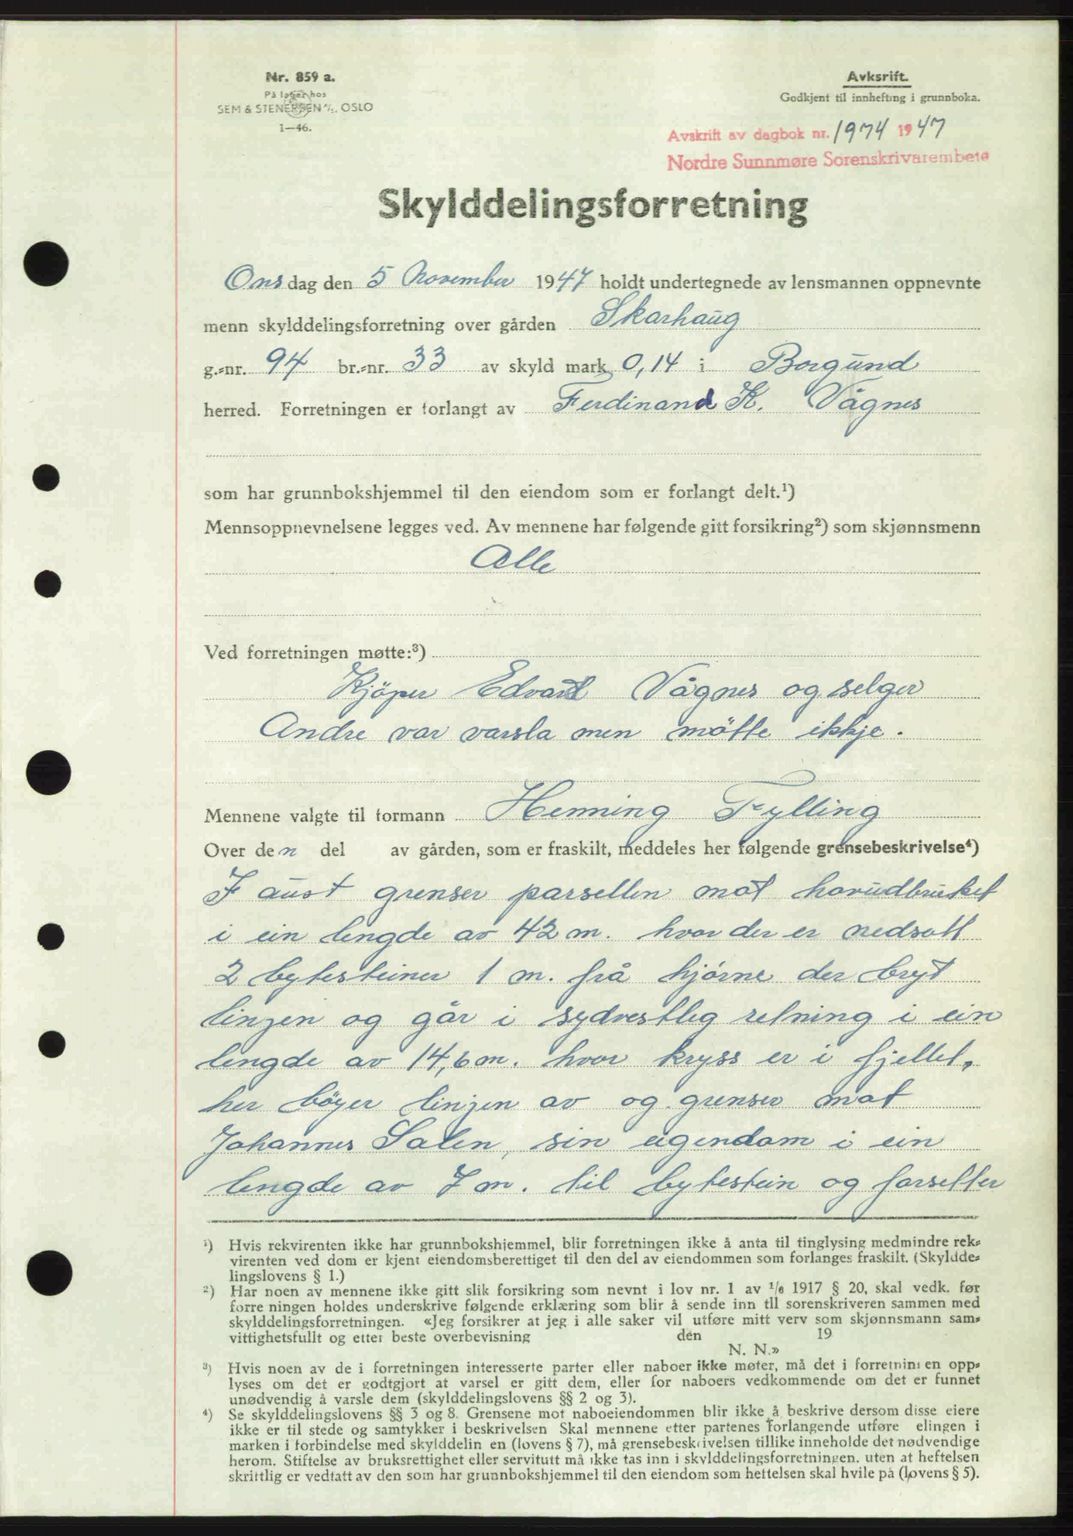 Nr. 859 a.
På lager hos
SEM & STENERSEN A/S, OSLO
1—46.
Avksrift.
Godkjent til innhefting i grunnboka.
Avskrift av dagbok nr. 1974 1947
Nordre Sunnmøre Sorenskrivarembete
Skylddelingsforretning
Onsdag den 5 November 1947 holdt undertegnede av lensmannen oppnevnte
menn skylddelingsforretning over gården Skarhaug
g.-nr. 94 br.-nr. 33 av skyld mark 0,14 i Borgund
herred. Forretningen er forlangt av Ferdinand K. Vågnes
som har grunnbokshjemmel til den eiendom som er forlangt delt.¹)
Mennsoppnevnelsene legges ved. Av mennene har følgende gitt forsikring²) som skjønnsmenn
Alle
Ved forretningen møtte:³)
Kjöper Edvard Vågnes og selger
Andre var varsla men mötte ikkje.
Mennene valgte til formann Henning Fylling
Over den del av gården, som er fraskilt, meddeles her følgende grensebeskrivelse⁴)
I aust grenser parsellen mot hovudbruket
i ein lengde av 42 m. hvor der er nedsatt
2 bytesteiner 1 m. frå hjörne der bryt
linjen og går i sydvestlig retning i ein
lengde av 14,6 m. hvor kryss er i fjellet,
her böyer linjen av og grenser mot
Johannes Salen, sin eigendom i ein
lengde av 7 m. til bytestein og forsetter
¹) Hvis rekvirenten ikke har grunnbokshjemmel, blir forretningen ikke å anta til tinglysing medmindre rek-
virenten ved dom er kjent eiendomsberettiget til den del av eiendommen som forlanges fraskilt. (Skyldde-
lingslovens § 1.)
²) Har noen av mennene ikke gitt slik forsikring som nevnt i lov nr. 1 av 1/6 1917 § 20, skal vedk. før
forre ningen holdes underskrive følgende erklæring som blir å sende inn til sorenskriveren sammen med
skylddelingsforretningen. «Jeg forsikrer at jeg i alle saker vil utføre mitt verv som skjønnsmann sam-
vittighetsfullt og etter beste overbevisning den 19
N. N.»
³) Hvis noen av de i forretningen interesserte parter eller naboer ikke møter, må det i forretnin en opp-
lyses om det er godtgjort at varsel er gitt dem, eller for naboers vedkommende om det er funnet
unødvendig å varsle dem (skylddelingslovens §§ 2 og 3).
⁴) Se skylddelingslovens §§ 3 og 8. Grensene mot naboeiendommen blir ikke å beskrive dersom disse eiere
ikke er til stede og samtykker i beskrivelsen Skal mennene etter partenes forlangende utføre elingen i
marken i forbindelse med skylddelin en (lovens § 7), må grensebeskrivelsen tillike inneholde det nødvendige
herom. Stiftelse av bruksrettighet eller servitutt må ikke tas inn i skylddelingsforretningen, uten at heftelsen
skriftlig er vedtatt av den som har grunnbokshjemmel til den eiendom som heftelsen skal hvile på (lovens § 5).